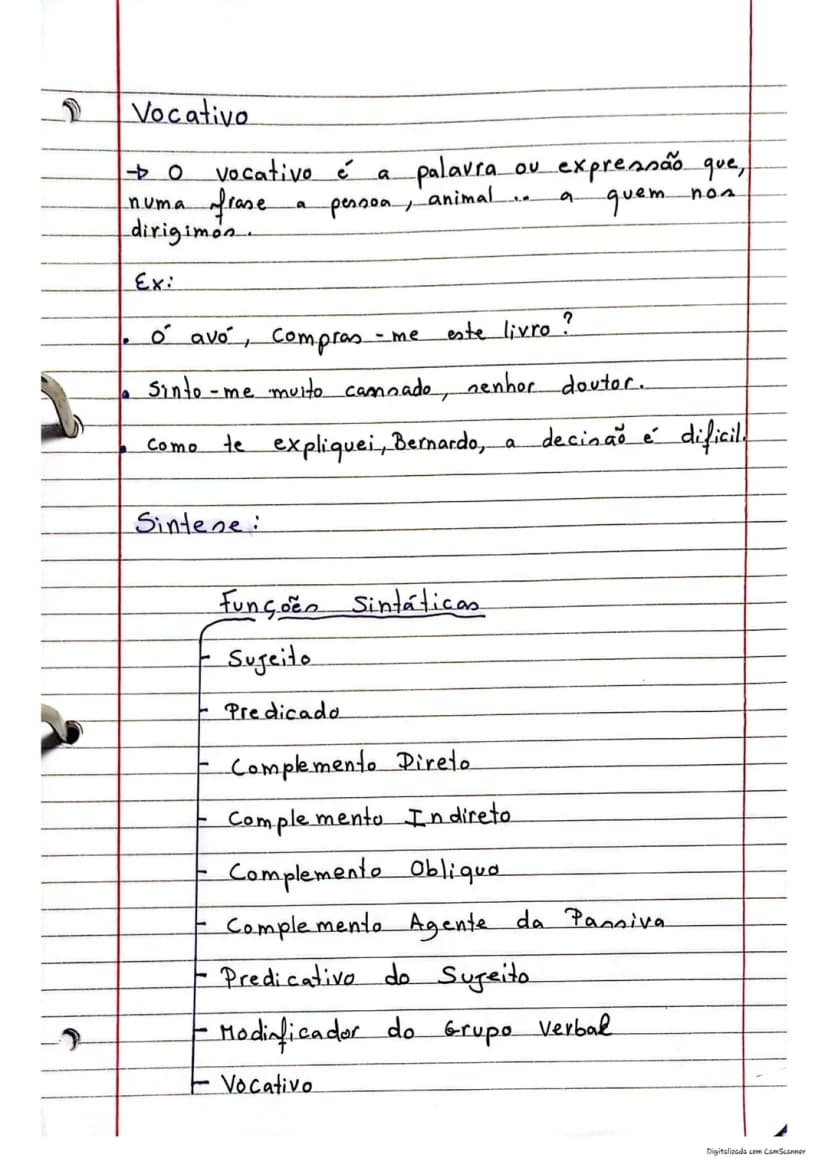 Vocativo
→ O vocativo é a palavra ou expressão que,
numa frase a pessoa, animal... a quem nos
dirigimos.
Ex:
• Ó avó, compras-me este livro?
• Sinto-me muito cansado, senhor doutor.
• Como te expliquei, Bernardo, a decisão é dificil.
Sintese:
Funções Sintáticas
- Sujeito
- Predicado
- Complemento Direto
- Complemento Indireto
- Complemento Obliquo
- Complemento Agente da Passiva
- Predicativo do Sujeito
- Modificador do Grupo Verbal
- Vocativo
Digitalizada com CamScanner